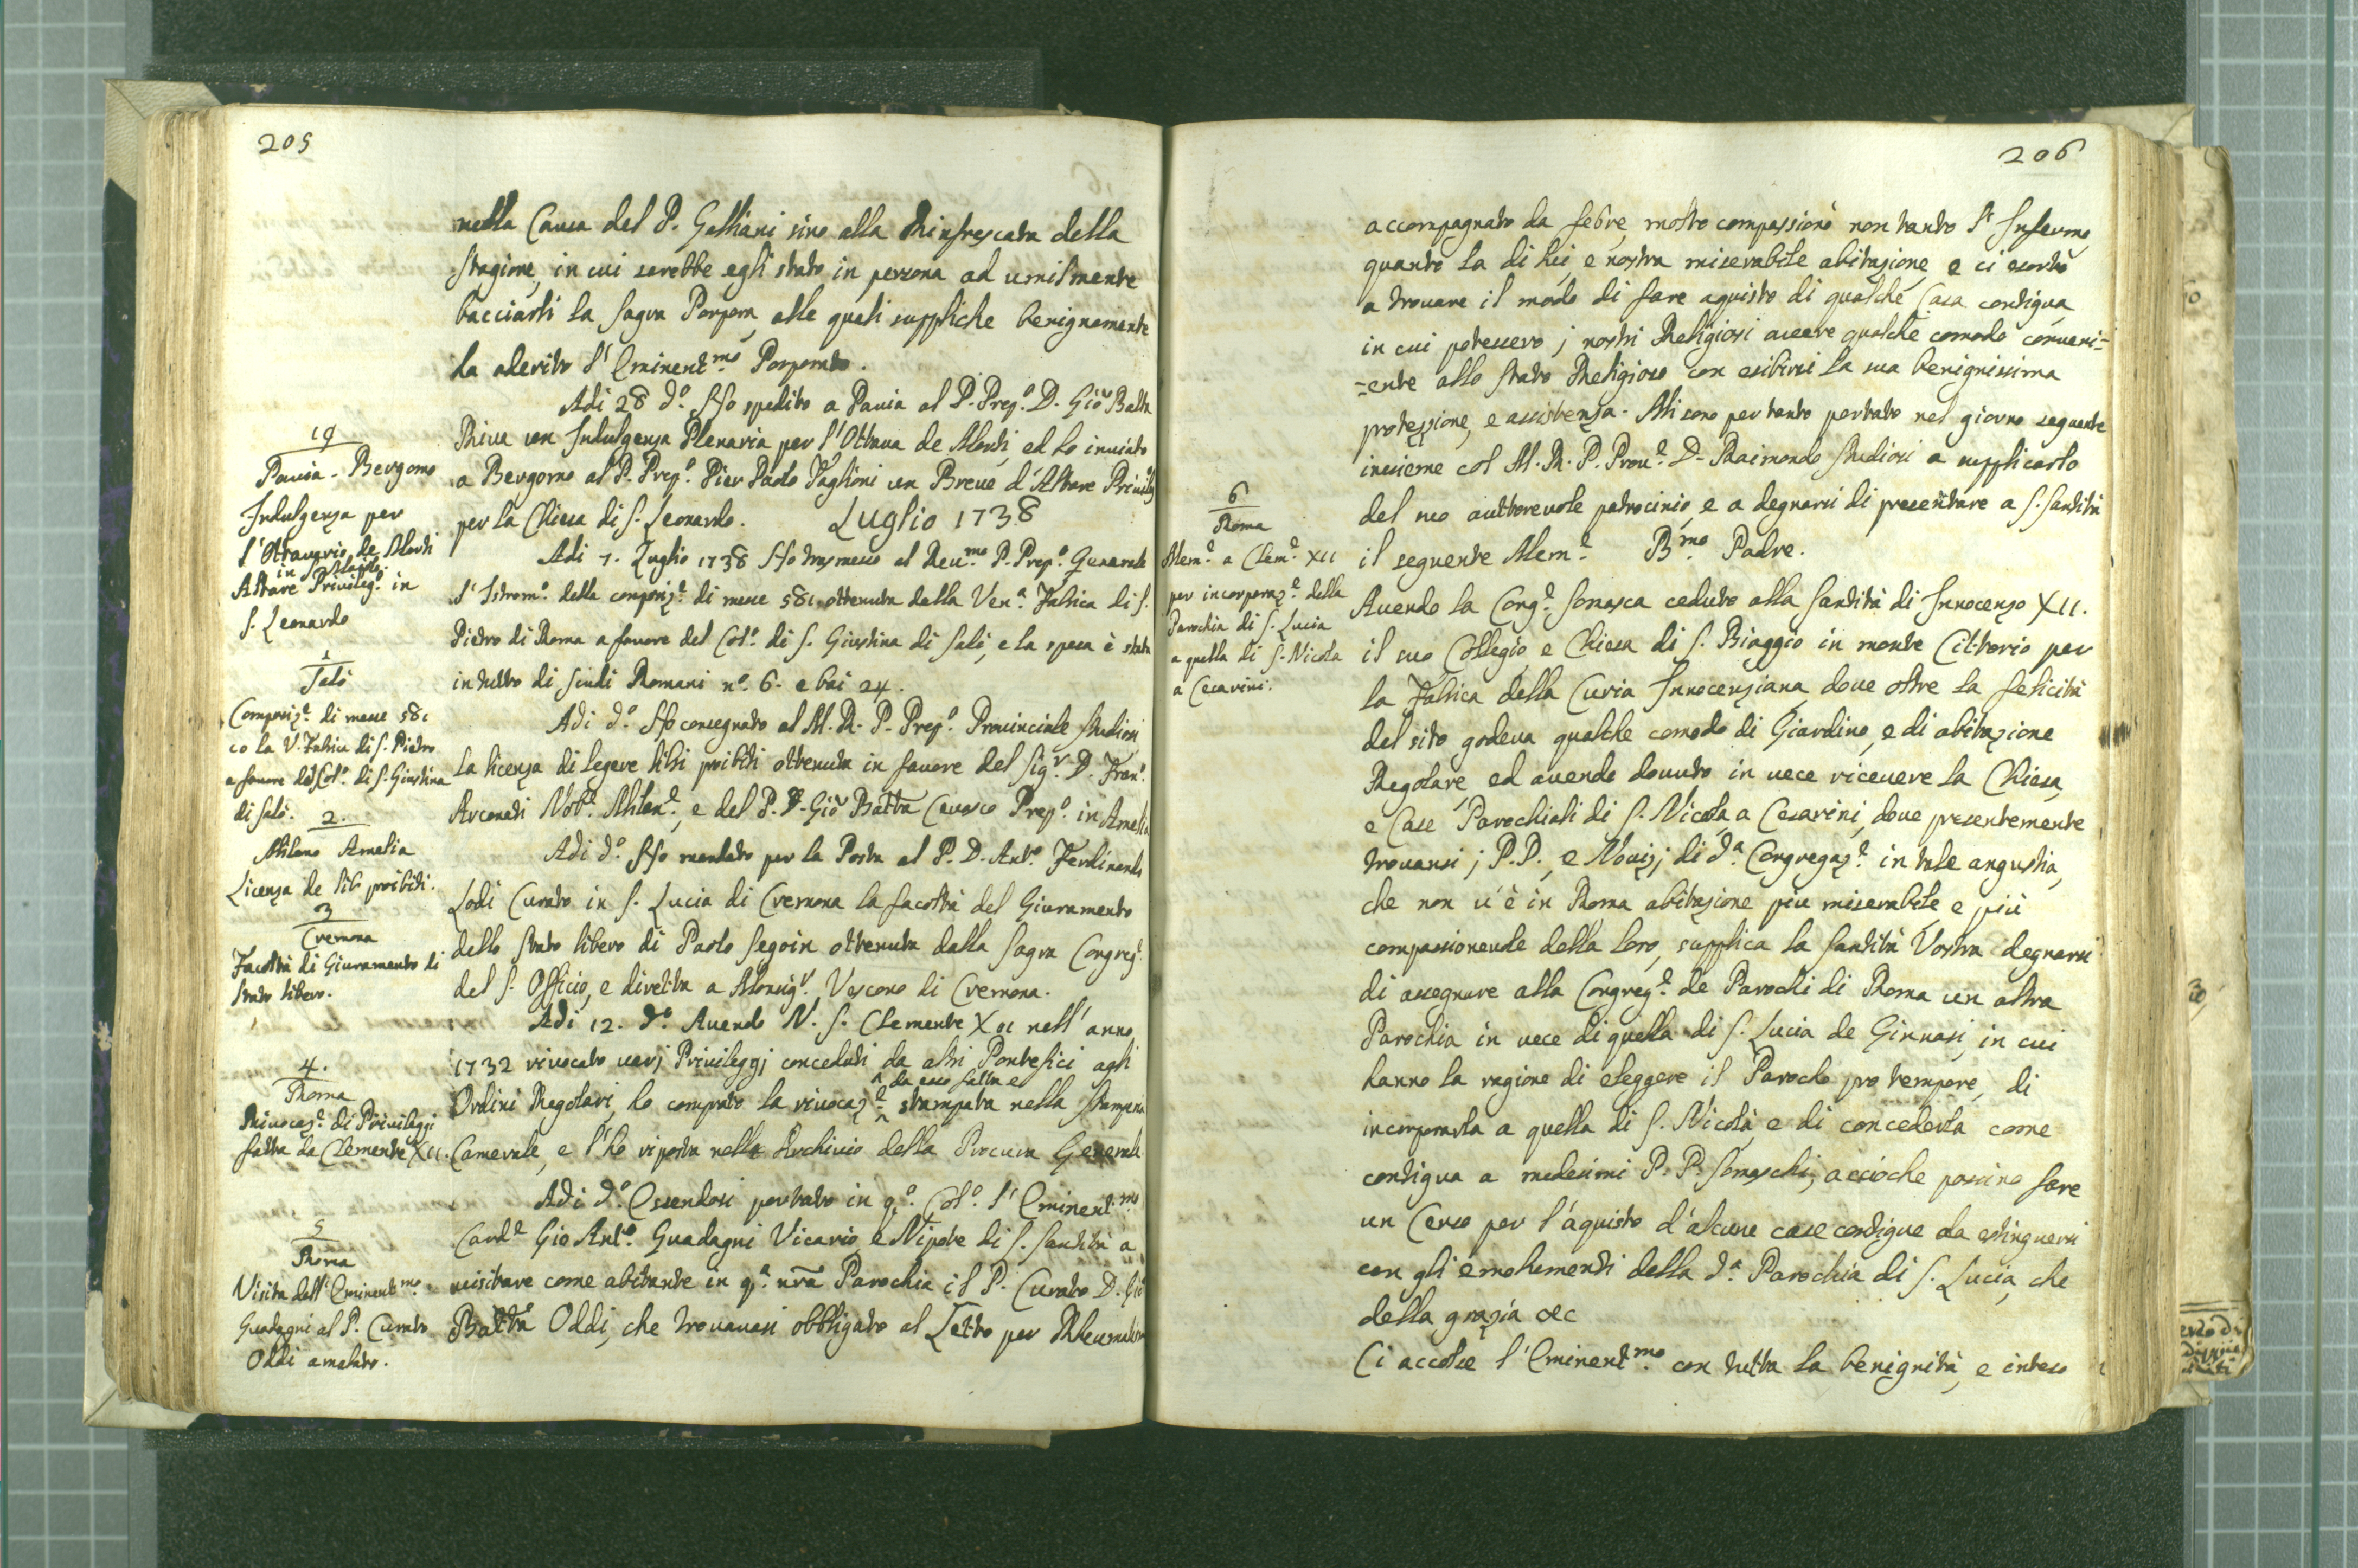 205
nella Causa del P. Galliani sino alla Rinfrescata della
Stagione, in cui sarebbe egli stato in persona ad umilmente
bacciarli la Sagra Porpora, alle quali suppliche benignamente
ha aderito l'Eminent.mo Porporato.
Adi 28 d.o Ho spedito a Pavia al P. Prep.o D. Giō Batta
Riva un Indulgenza Plenaria per l'Ottava de Morti, ed ho inviato
a Bergomo al P. Prep.o Pier Paolo Taglioni un Breve d'Altare Privileg
per la Chiesa di S. Leonardo.
Luglio 1738
Adi 7. Luglio 1738 Ho trasmesso al Reu.mo P. Prep.o Generale
l'Istrom.o della composiz.e di messe 581 ottenuta dalla Ven.a Fabrica di S.
Pietro di Roma a favore del Col.o di S. Giustina di Salò, e la spesa è stata
in tutto di Scudi Romani n.o 6. e bai 24.
Adi d.o Ho consegnato al M. R. P. Prep.o Provinciale Studiosi
la licenza di legere libri proibiti ottenuta in favore del Sig.r D. Fran.o
Arconati Nob.e Milan.e, e del P. D. Giō Batta Cevasco Prep.o in Amelia
Adi d.o Ho mandato per la Posta al P. D. Ant.o Ferdinando
Lodi Curato in S. Lucia di Cremona la facoltà del Giuramento
dello stato libero di Paolo Segoin ottenuta dalla Sagra Congreg.e
del S. Officio, e diretta a Monsig.r Vescovo di Cremona.
Adi 12. d.o Avendo N. S. Clemente XII nell'anno
1732 rivocato varj Privileggj conceduti da altri Pontefici agli
Ordini Regolari, ho comprato la rivocaz.e ^ da esso fatta e ^ stampata nella Stamperia
Camerale, e l'ho riposta nella Archivio della Procura Generale.
Adi d.o Essendosi portato in q.o Col.o l'Eminent.mo
Card.e Gio Ant.o Guadagni Vicario, e Nipote di S. Santità a
visitare come abitante in q.a nrā Parochia il P. Curato D. Giō
Batta Oddi, che trovavasi obbligato al Letto per Rheumatism
19
Pavia - Bergomo
Indulgenza per
l'Ottavario de Morti
Altare Privileg.o in
S. Leonardo
1
Salò
Composiz.e di messe 581
co la V. Fabrica di S. Pietro
a favore del Col.o di S. Giustina
di Salò.
2.
Milano Amelia
Licenza de lib proibiti.
3
Cremona
Facoltà di Giuramento di
stato libero.
4.
Roma
Rivocaz.e di Privileggj
fatta da Clemente XII.
5
Roma
Visita dell'Eminent.mo
Guadagni al P. Curato
Oddi amalato.
206
accompagnato da febre, mostrò compassione non tanto l'Infermo,
quanto la di lui, e nostra miserabile abitazione, e ci esortò
a trovare il modo di fare aquisto di qualche Casa contigua,
in cui potessero j nostri Religiosi avere qualche comodo conveni-
-ente allo stato Religioso con esibirsi la sua benignissima
protezzione, e assistenza. Mi sono per tanto portato nel giorno seguente
insieme col M. R. P. Prov.e D. Raimondo Studiosi a supplicarlo
del suo auttorevole patrocinio, e a degnarsi di presentare a S. Santità
il seguente Mem.e
B.mo Padre.
Avendo la Cong.e Somasca ceduto alla Santità di Innocenzo XII.
il suo Collegio, e Chiesa di S. Biaggio in monte Cittorio per
la Fabrica della Curia Innocenziana, dove oltre la felicità
del sito godeva qualche comodo di Giardino, e di abitazione
Regolare, ed avendo dovuto in vece ricevere la Chiesa,
e Case Parochiali di S. Nicola a Cesarini, dove presentemente
trovansi j P.P., e Novizj di d.a Congregaz.e in tale angustia,
che non v'è in Roma abitazione più miserabile, e più
compassionevole della loro, supplica la Santità Vostra degnarsi
di assegnare alla Congreg.e de Parochi di Roma un altra
Parochia in vece di quella di S. Lucia de Ginnasi, in cui
hanno la ragione di eleggere il Parocho pro tempore, di
incorporarla a quella di S. Nicola, e di concederla come
contigua a medesimi P. P. Somaschi, accioche possino fare
un Censo per l'aquisto d'alcune case contigue da estinguersi
con gli emolumenti della d.a Parochia di S. Lucia, che
della grazia &c
Ci accolse l'Eminent.mo con tutta la benignità, e inteso
6
Roma
Mem.e a Clem.e XII
per incorporaz.e della
Parochia di S. Lucia
a quella di S. Nicola
a Cesarini.